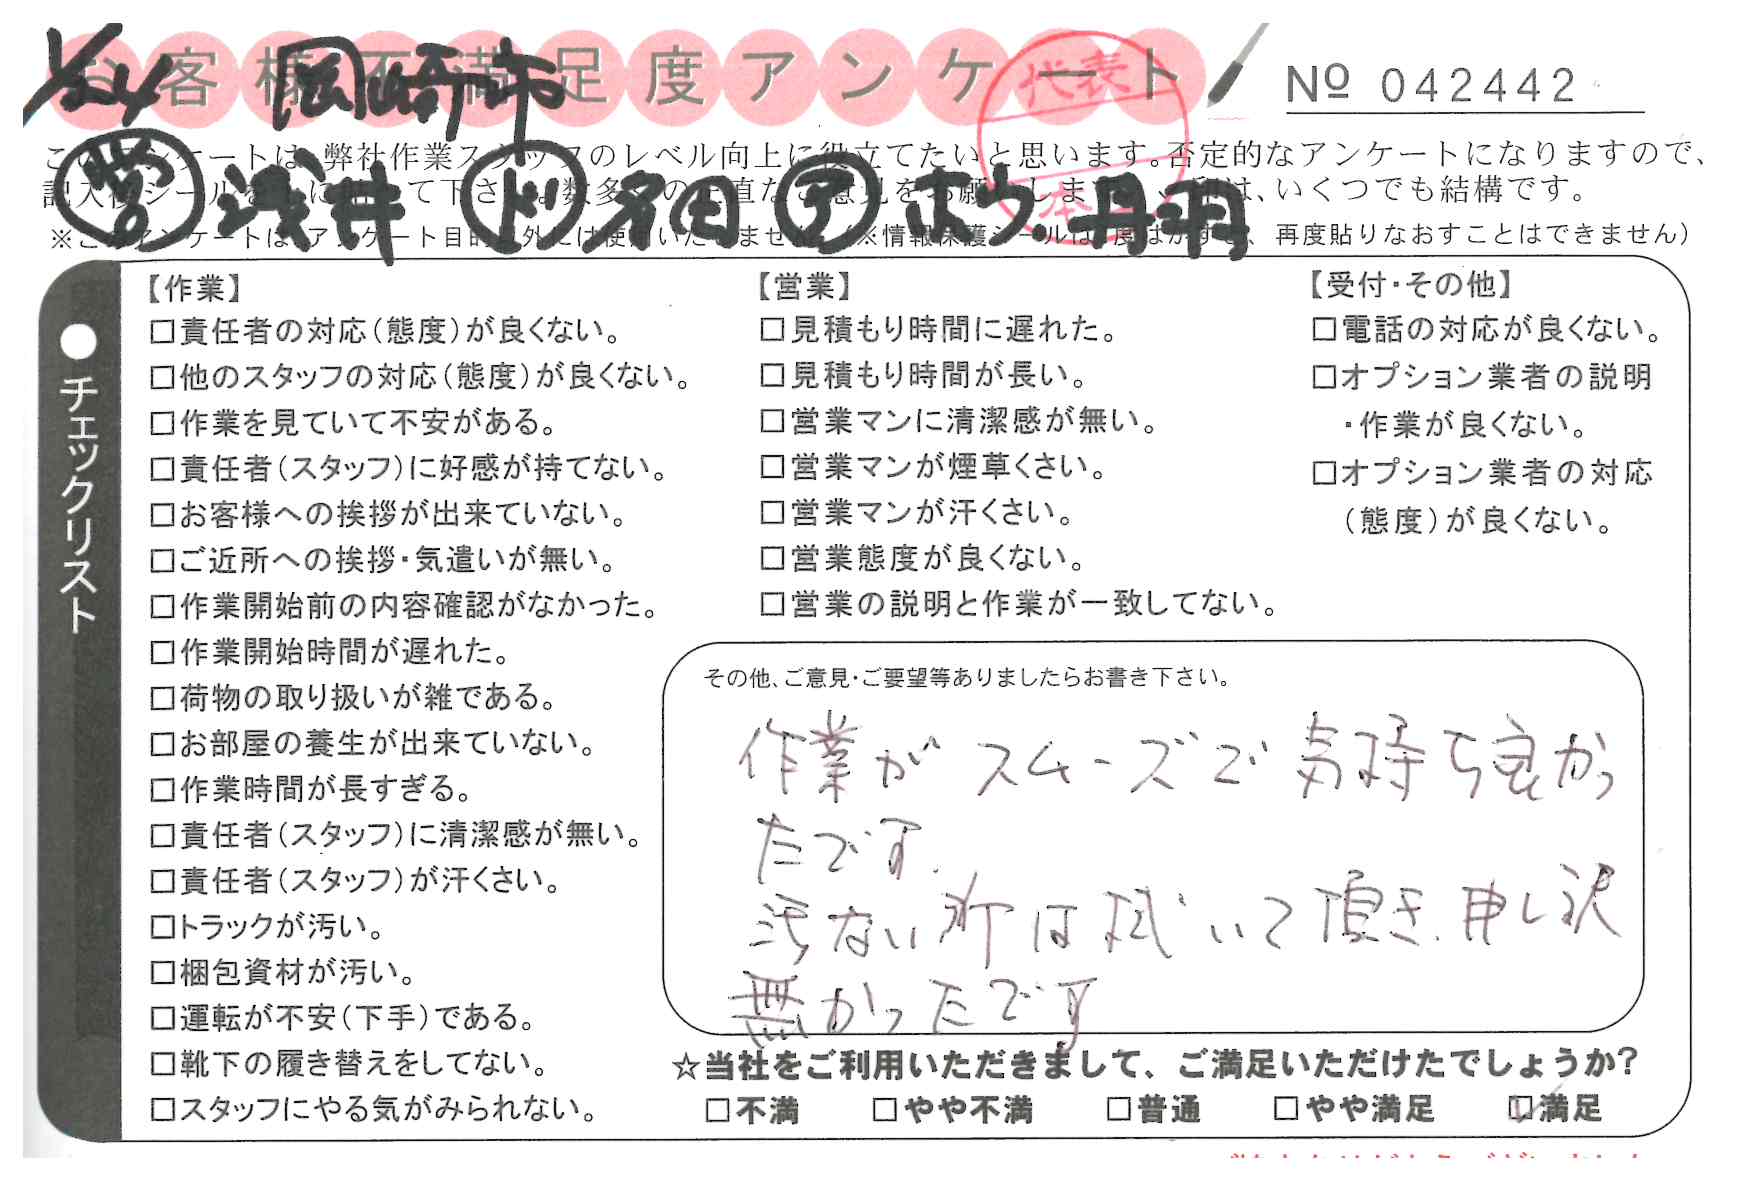 お客様不満足度アンケート
№ 042442
1/24 岡崎市
営 浅井 ド 多田 ア ホウ 丹羽
代表
このアンケートは、弊社作業スタッフのレベル向上に役立てたいと思います。否定的なアンケートになりますので、
記入後シールを上に貼って下さい。数多くの正直なご意見をお願いします。 印は、いくつでも結構です。
※このアンケートは、アンケート目的以外には使用いたしません。(※情報保護シールは1度はがすと、再度貼りなおすことはできません)
●チェックリスト
【作業】
□責任者の対応(態度)が良くない。
□他のスタッフの対応(態度)が良くない。
□作業を見ていて不安がある。
□責任者(スタッフ)に好感が持てない。
□お客様への挨拶が出来ていない。
□ご近所への挨拶・気遣いが無い。
□作業開始前の内容確認がなかった。
□作業開始時間が遅れた。
□荷物の取り扱いが雑である。
□お部屋の養生が出来ていない。
□作業時間が長すぎる。
□責任者(スタッフ)に清潔感が無い。
□責任者(スタッフ)が汗くさい。
□トラックが汚い。
□梱包資材が汚い。
□運転が不安(下手)である。
□靴下の履き替えをしてない。
□スタッフにやる気がみられない。
【営業】
□見積もり時間に遅れた。
□見積もり時間が長い。
□営業マンに清潔感が無い。
□営業マンが煙草くさい。
□営業マンが汗くさい。
□営業態度が良くない。
□営業の説明と作業が一致してない。
【受付・その他】
□電話の対応が良くない。
□オプション業者の説明
・作業が良くない。
□オプション業者の対応
(態度)が良くない。
その他、ご意見・ご要望等ありましたらお書き下さい。
作業がスムーズで気持ち良かっ
たです。
汚ない所は拭いて頂き、申し訳
無かったです
☆当社をご利用いただきまして、ご満足いただけたでしょうか?
□不満 □やや不満 □普通 □やや満足 ☑満足